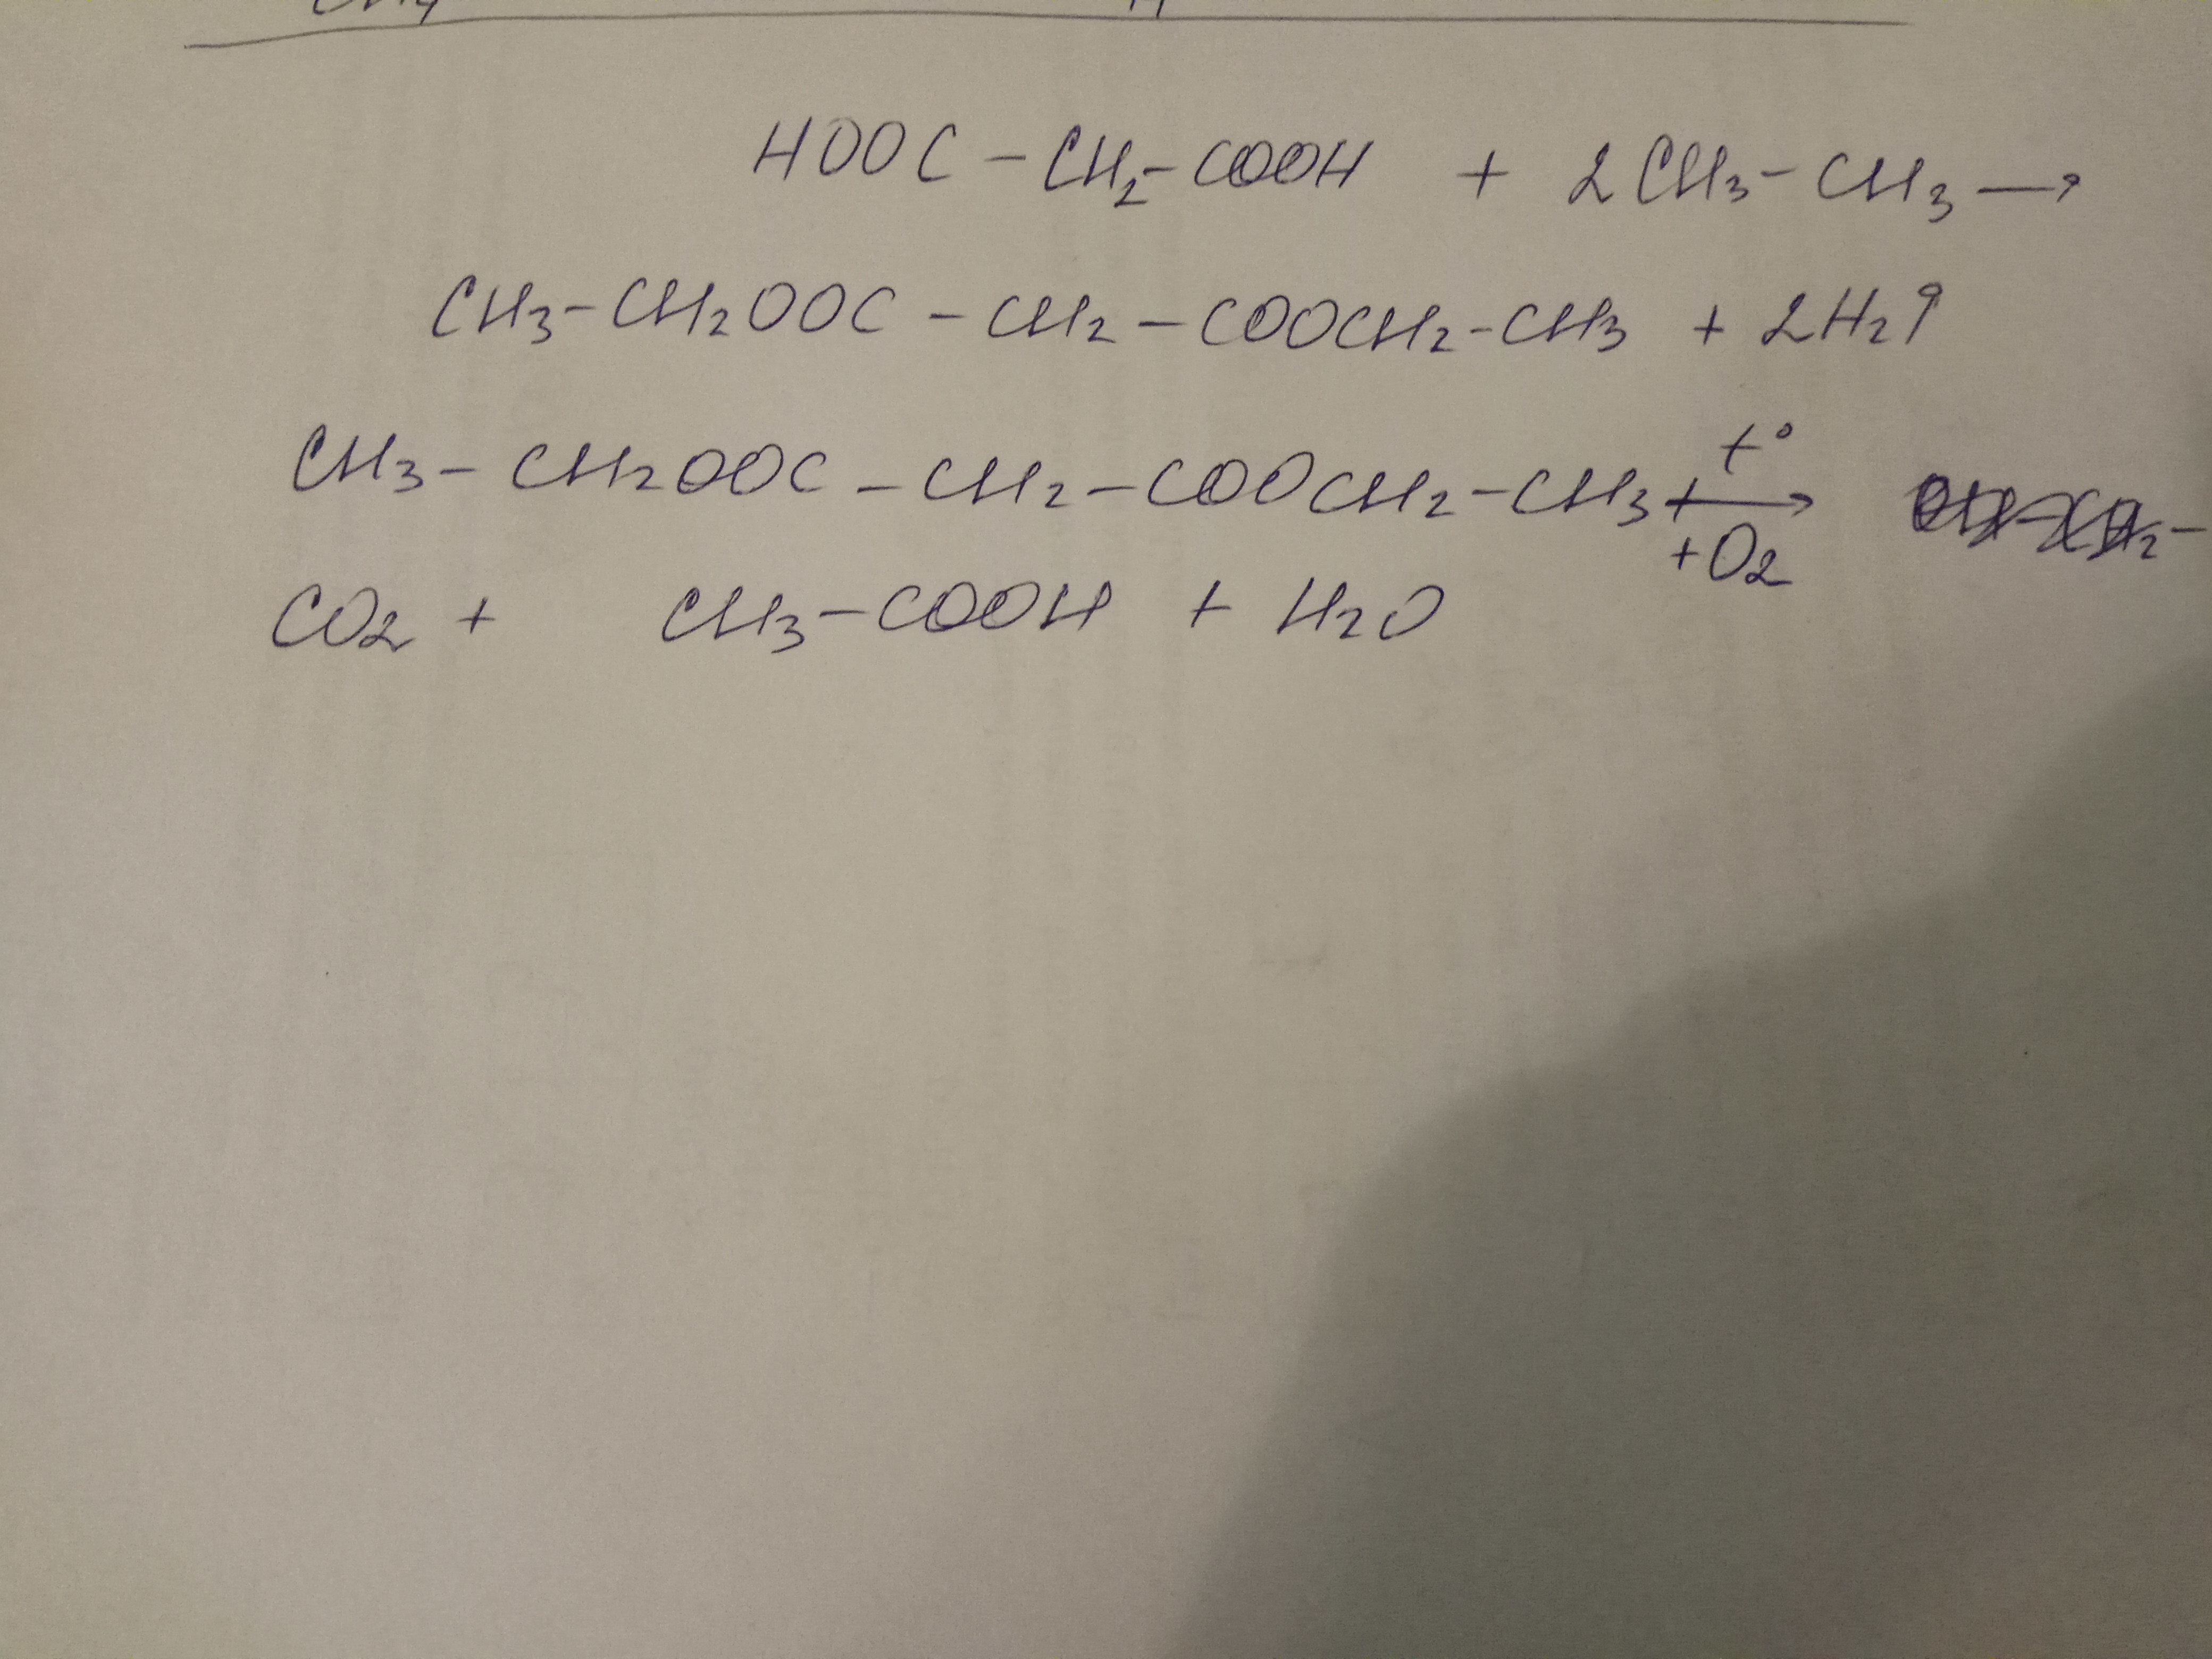 HOOC - CH₂ - COOH + 2CH₃ - CH₃ →
CH₃ - CH₂OOC - CH₂ - COOCH₂ - CH₃ + 2H₂↑
t°
CH₃ - CH₂OOC - CH₂ - COOCH₂ - CH₃ + →
+O₂
CO₂ + CH₃ - COOH + H₂O